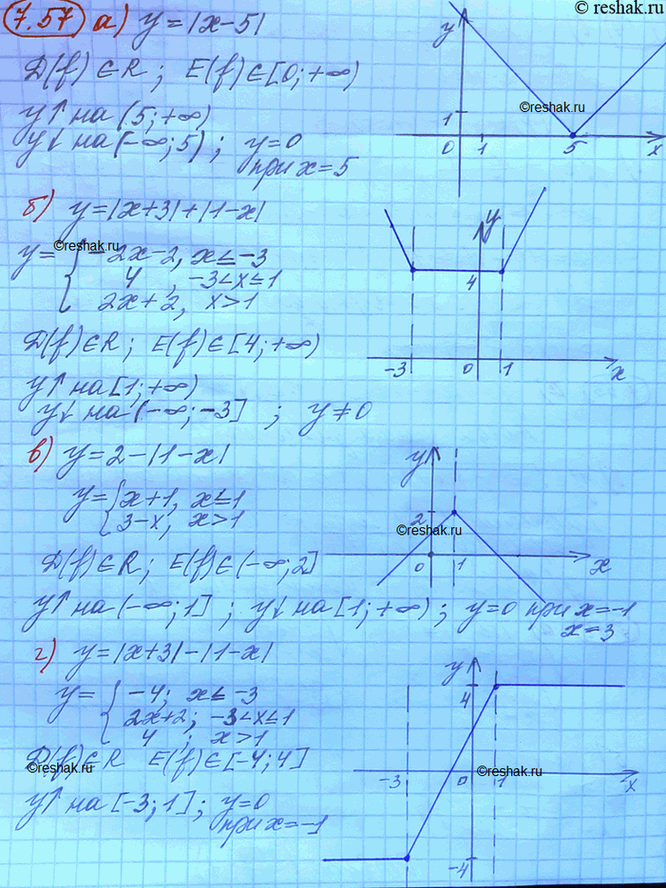 © reshak.ru
7.57 а) y = |x-5|
D(f)∈R; E(f)∈[0;+∞)
y↑ на (5;+∞)
y↓ на (-∞;5); y=0
при x=5
y
1
0 1 5 x
©reshak.ru
б) y=|x+3|+|1-x|
©reshak.ru
y = { -2x-2, x≤-3
4, -3<x≤1
2x+2, x>1
D(f)∈R; E(f)∈[4;+∞)
y↑ на [1;+∞)
y↓ на (-∞;-3] ; y≠0
y
4
-3 0 1 x
в) y=2-|1-x|
y={ x+1, x≤1
3-x, x>1
D(f)∈R; E(f)∈(-∞;2]
y↑ на (-∞;1] ; y↓ на [1;+∞); y=0 при x=-1
x=3
y
2
©reshak.ru
0 1 x
г) y=|x+3|-|1-x|
y= { -4; x≤-3
2x+2; -3<x≤1
4 ; x>1
D(f)∈R E(f)∈[-4;4]
©reshak.ru
y↑ на [-3;1]; y=0
при x=-1
y
4
-3 0 1 x
©reshak.ru
-4